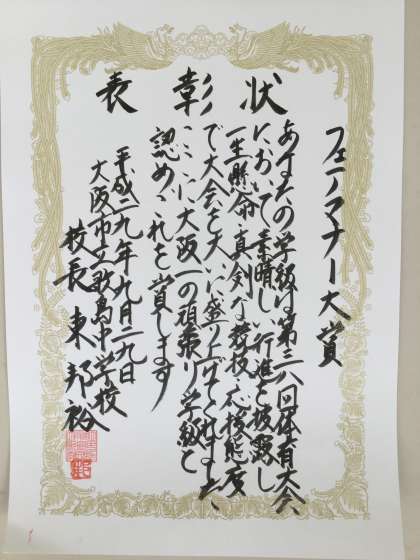 表彰状
フェアマナー大賞
あなたの学級は第三八回体育大会
において素晴しい行進を披露し
一生懸命、真剣な競技、応援態度
で大会を大いに盛り上げてくれました
ここに大阪一の頑張り学級と
認めこれを賞します
平成二九年九月二九日
大阪市立歌島中学校
校長 東邦裕